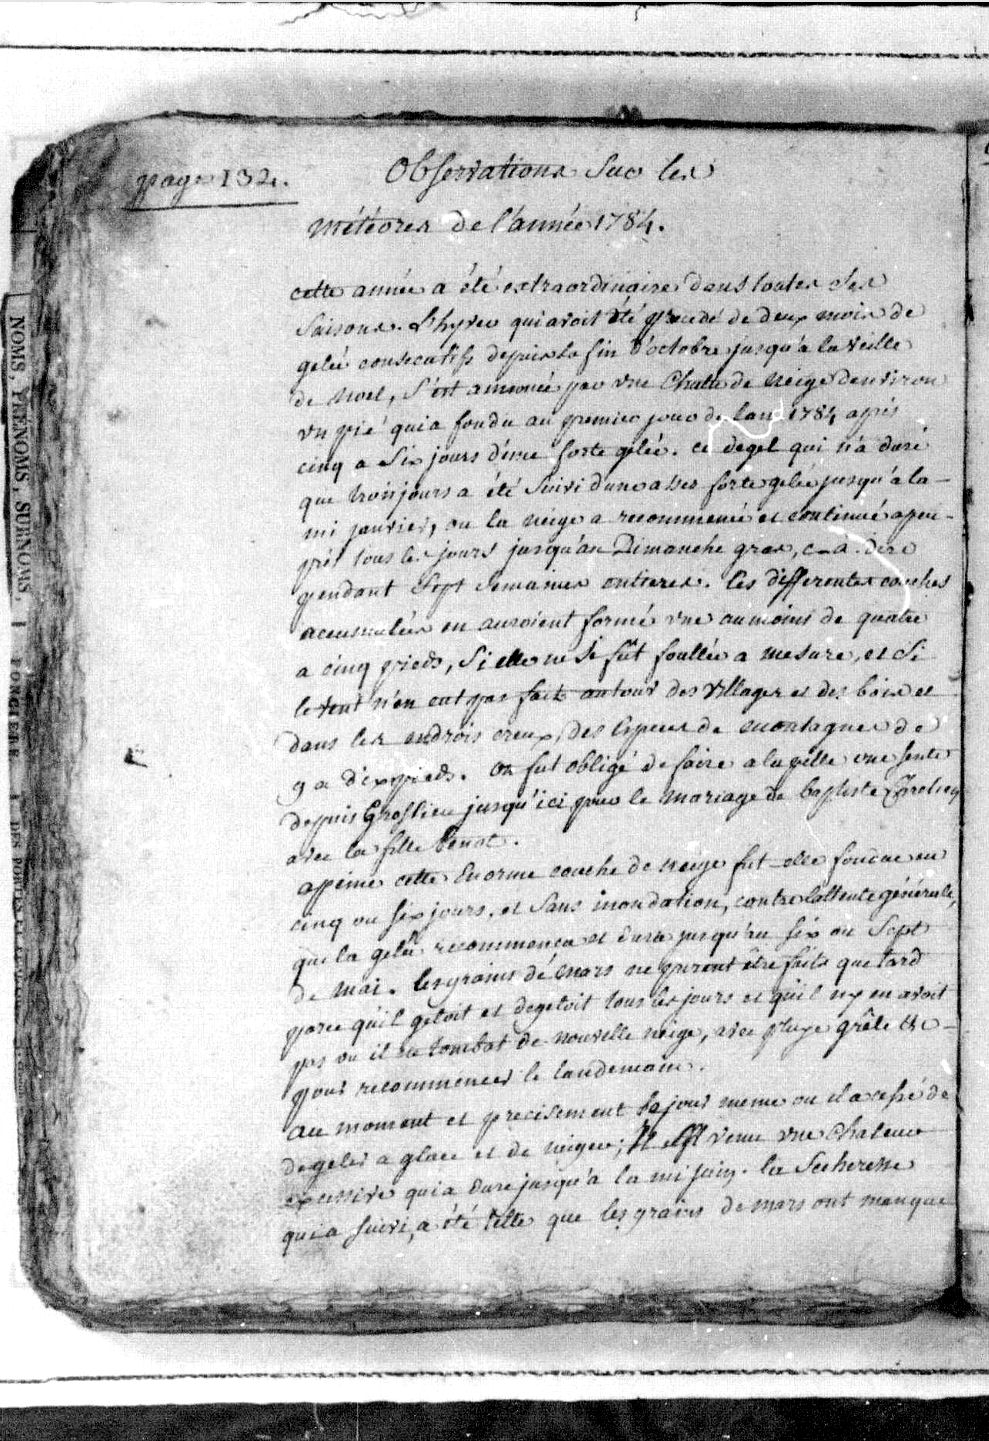 page 132.
Observations Sur les
météores de l'année 1784.
cette année a été extraordinaire dans toutes ses
Saisons. L'hyver qui avoit été precedé de deux mois de
gelée consecutifs depuis la fin d'octobre jusqu'a la veille
de Noel, s'est annoncé par une Chutte de Neige d'environ
un pié qui a fondu au premier jour de l'an 1784 après
cinq a Six jours d'une forte gelée. ce degel qui n'a duré
que trois jours a été Suivi d'une assés forte gelée jusqu'a la
mi janvier, ou la neige a recommencé et continué a peu-
prés tous les jours jusqu'au Dimanche gras, c-à-dire
pendant Sept Semaines entieres. les differentes couches
accumulées en auroient formé une au moins de quatre
a cinq pieds, Si elle ne Se fût foullée a mesure, et Si
le vent n'en eut pas fait autour des Villages et des bois et
dans les endrois creux, des Especes de montagnes de
9 a dix pieds. On fut obligé de faire a la pêlle une Sente
depuis Groslieu jusqu'ici pour le mariage de baptiste
avec la fille benot.
apeine cette Enorme couche de neige fut elle fondue en
cinq ou six jours, et Sans inondation, contre l'attente générale,
que la gelée recommença et dura jusqu'au six ou Sept
de mai. les grains de mars ne purent être faits que tard
parce qu'il geloit et degeloit tous les jours et qu'il n'y en avoit
pas ou il ne tombat de nouvelle neige, avec pluye grêle &c-
pour recommencer le landemain.
au moment et precisement le jour meme ou il a cessé de
degeler a glace et de neiger, il est venu une Chaleur
excessive qui a duré jusqu'à la mi juin. la Secheresse
qui a suivi, a été telle que les grains de mars ont manqué
NOMS, PRÉNOMS, SURNOMS,